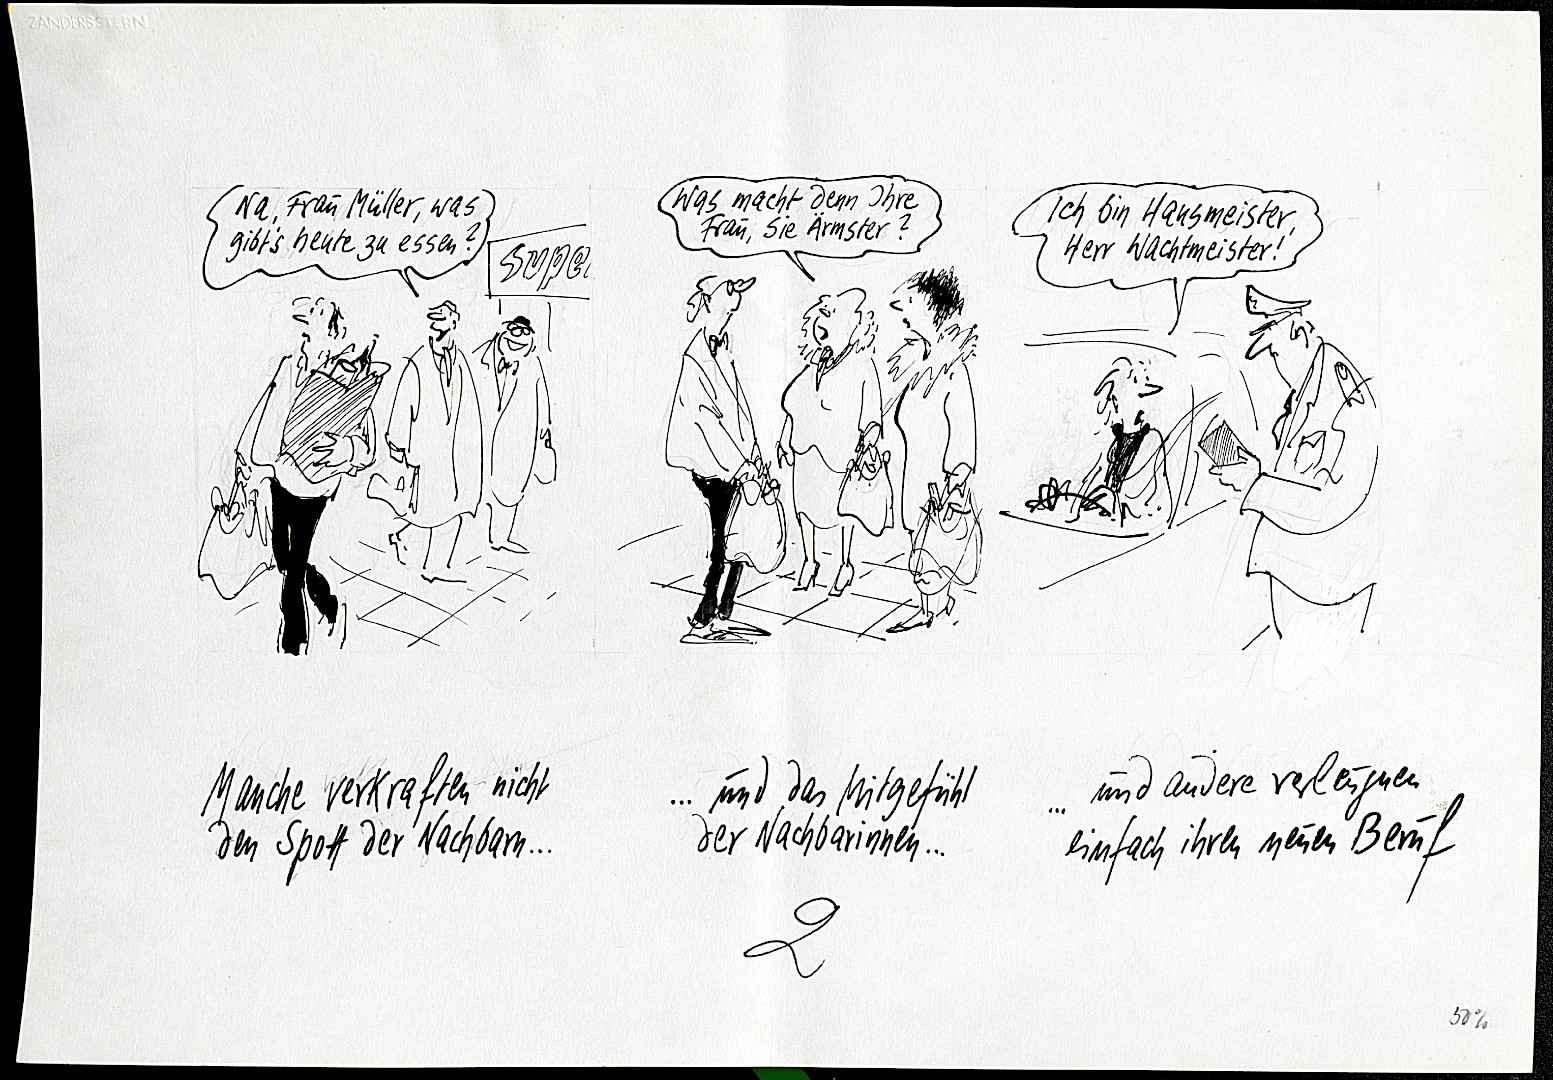 ZANDERSSTERN
Na, Frau Müller, was
gibt's heute zu essen?
Super
Was macht denn Ihre
Frau, Sie Ärmster?
Ich bin Hausmeister,
Herr Wachtmeister!
Manche verkraften nicht
den Spott der Nachbarn...
... und das Mitgefühl
der Nachbarinnen...
... und andere verleugnen
einfach ihren neuen Beruf
2
50%